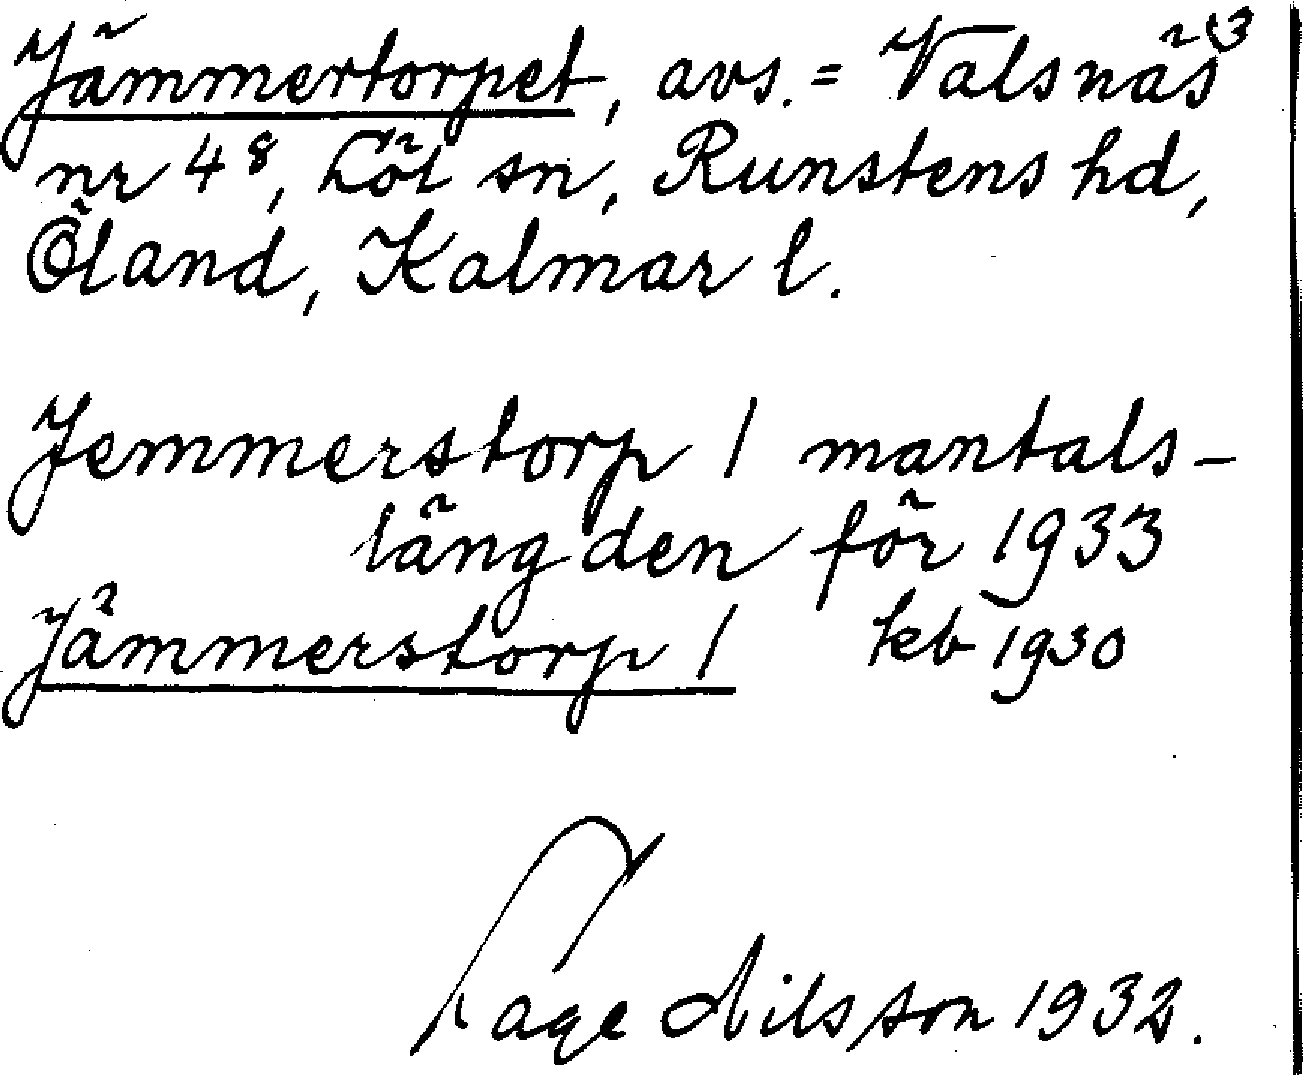 Jämmertorpet, avs. = Valsnäs
nr 4⁸, Löt sn, Runstens hd,
Öland, Kalmar l.
Jemmerstorp / mantals-
längden för 1933
Jämmerstorp / kb 1930
Tage Nilsson 1932.